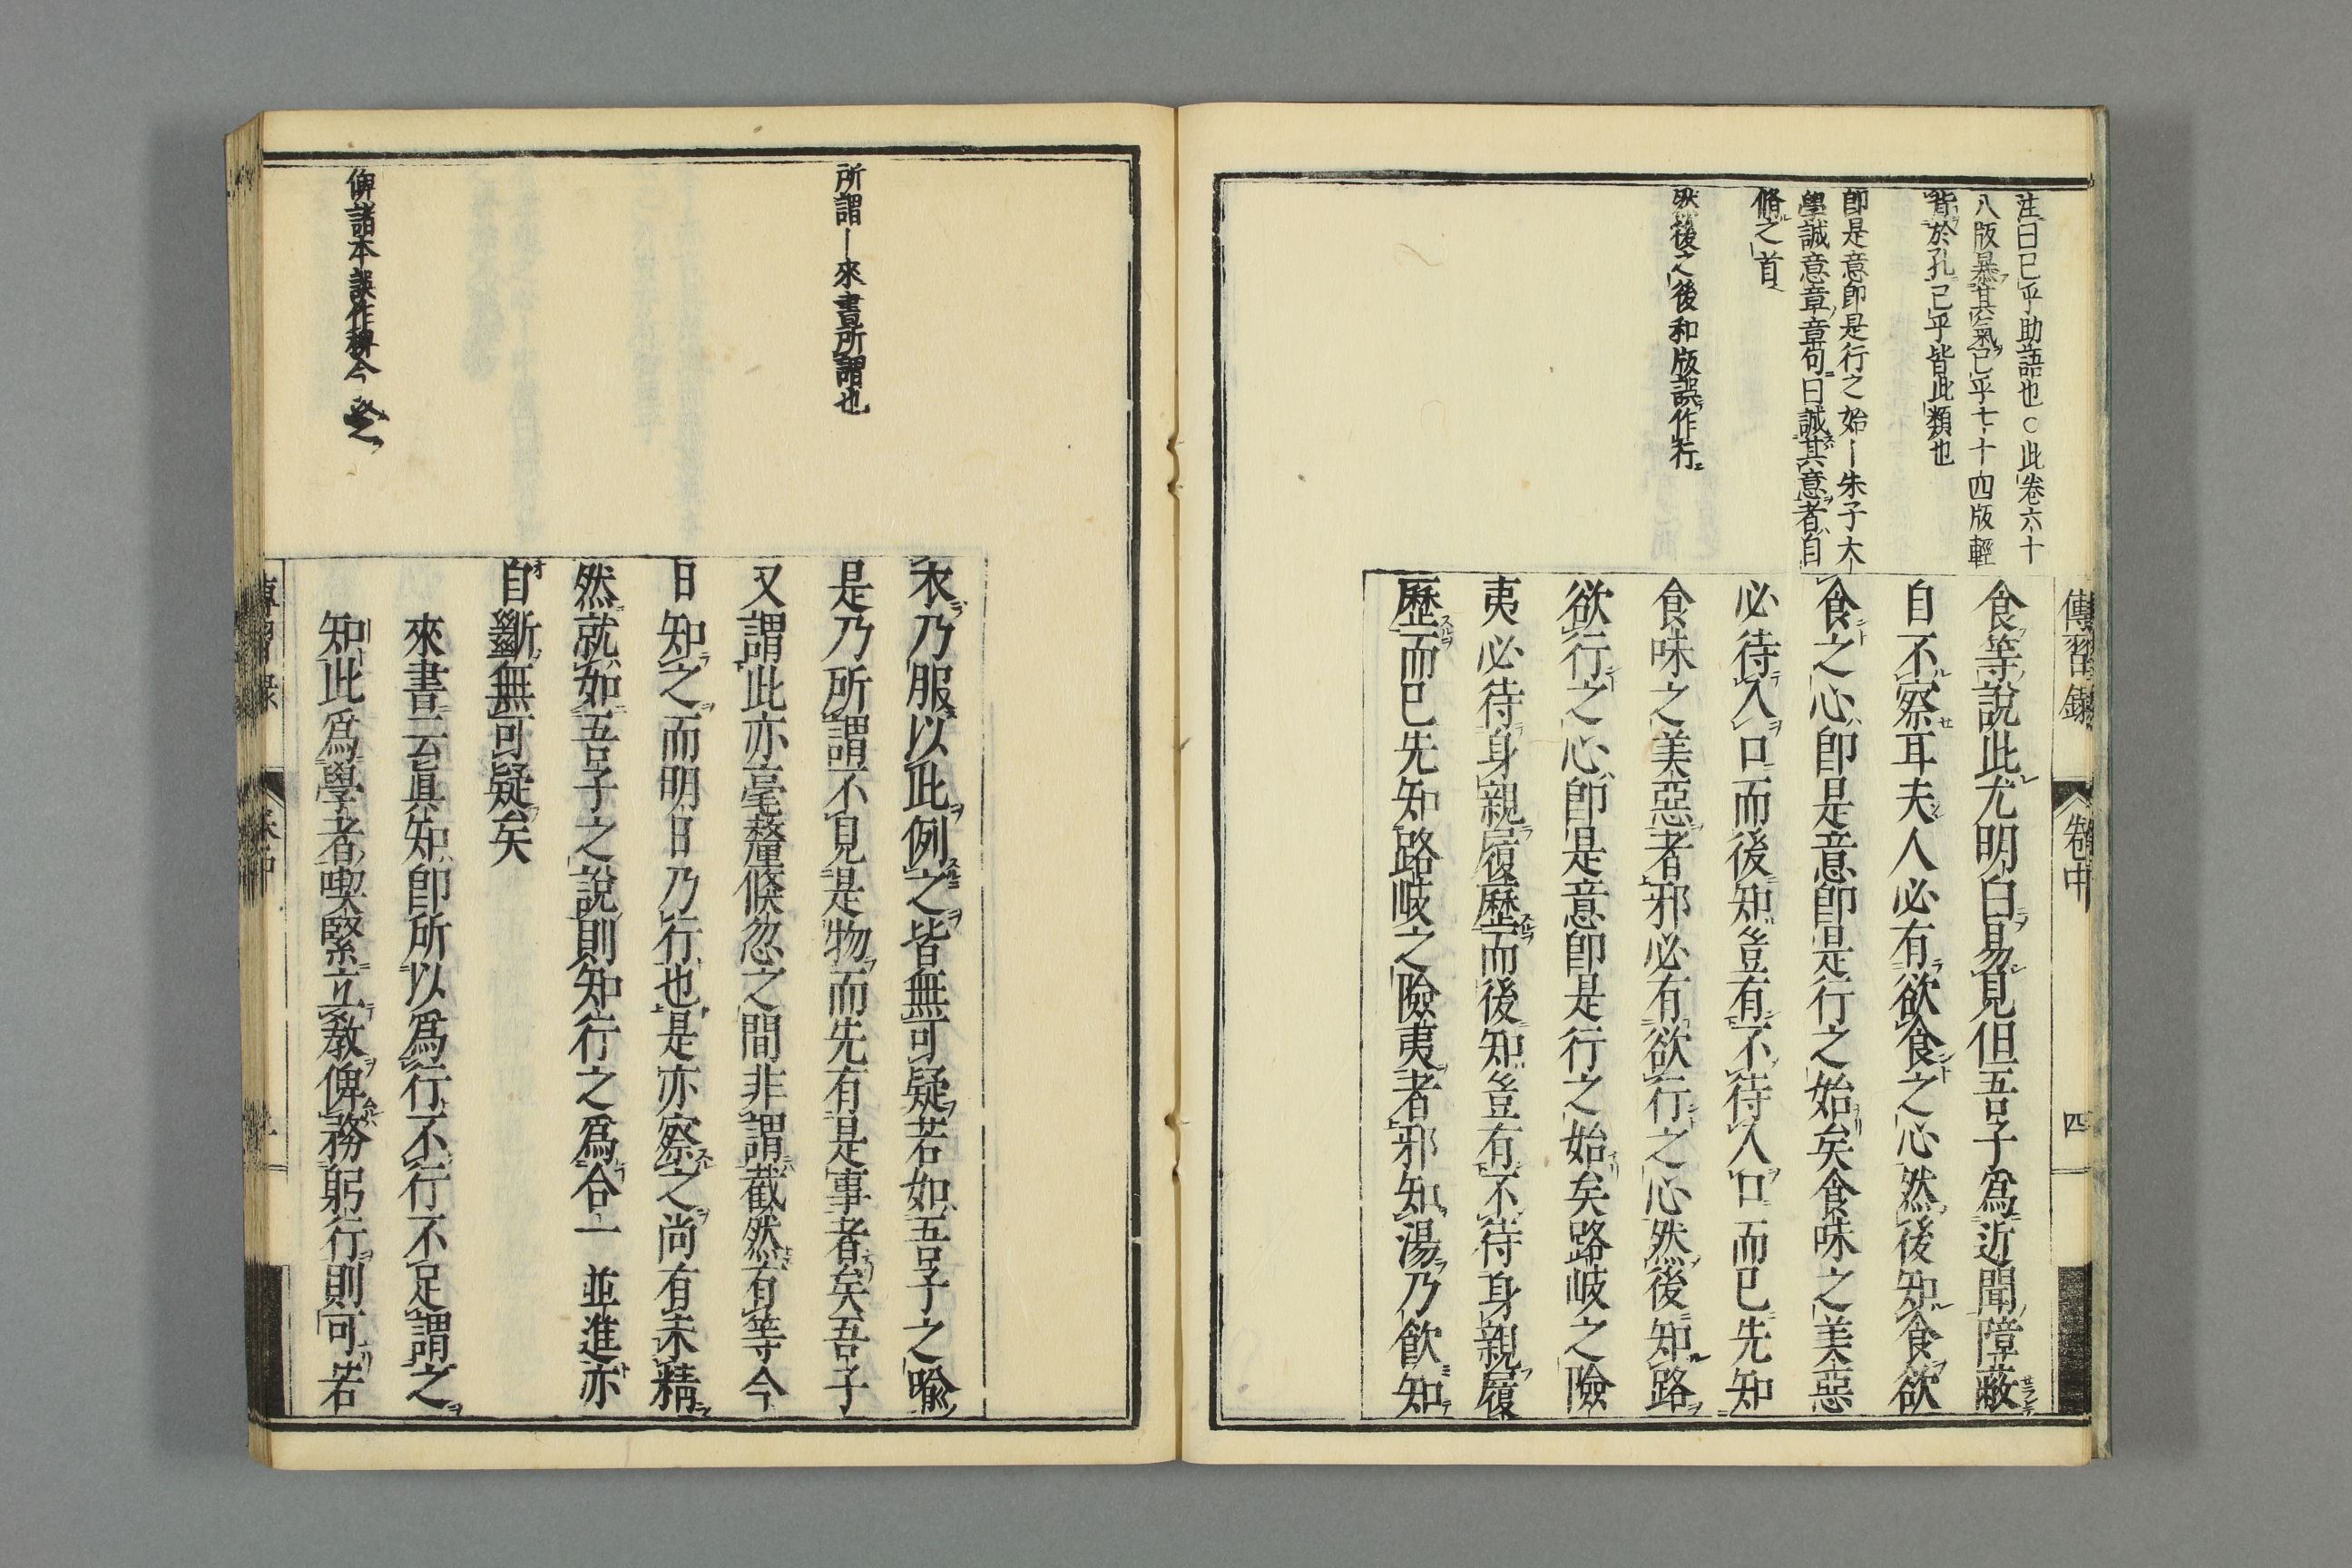 傳習錄 卷中 四
注曰已乎助語也○此卷六十
八版暴其氣已乎七十四版輕
背於孔已乎皆此類也
卽是意卽是行之始ー朱子大
學誠意章章句曰誠其意者自
脩之首
然後之後和版誤作行
食等說此尤明白易見但吾子為近聞障蔽
自不察耳夫人必有欲食之心然後知食欲
食之心卽是意卽是行之始矣食味之美惡
必待入口而後知豈有不待入口而已先知
食味之美惡者邪必有欲行之心然後知路
欲行之心卽是意卽是行之始矣路岐之險
夷必待身親履歷而後知豈有不待身親履
歷而已先知路岐之險夷者邪知湯乃飮知
所謂ー來書所謂也
俾諸本誤作稗今
衣乃服以此例之皆無可疑若如吾子之喻
是乃所謂不見是物而先有是事者矣吾子
又謂此亦毫釐倏忽之間非謂截然有等今
日知之而明日乃行也是亦察之尚有未精
然就如吾子之說則知行之爲合一並進亦
自斷無可疑矣
來書云眞知卽所以爲行不行不足謂之
知此爲學者喫緊立教俾務躬行則可若
傳習錄 卷中